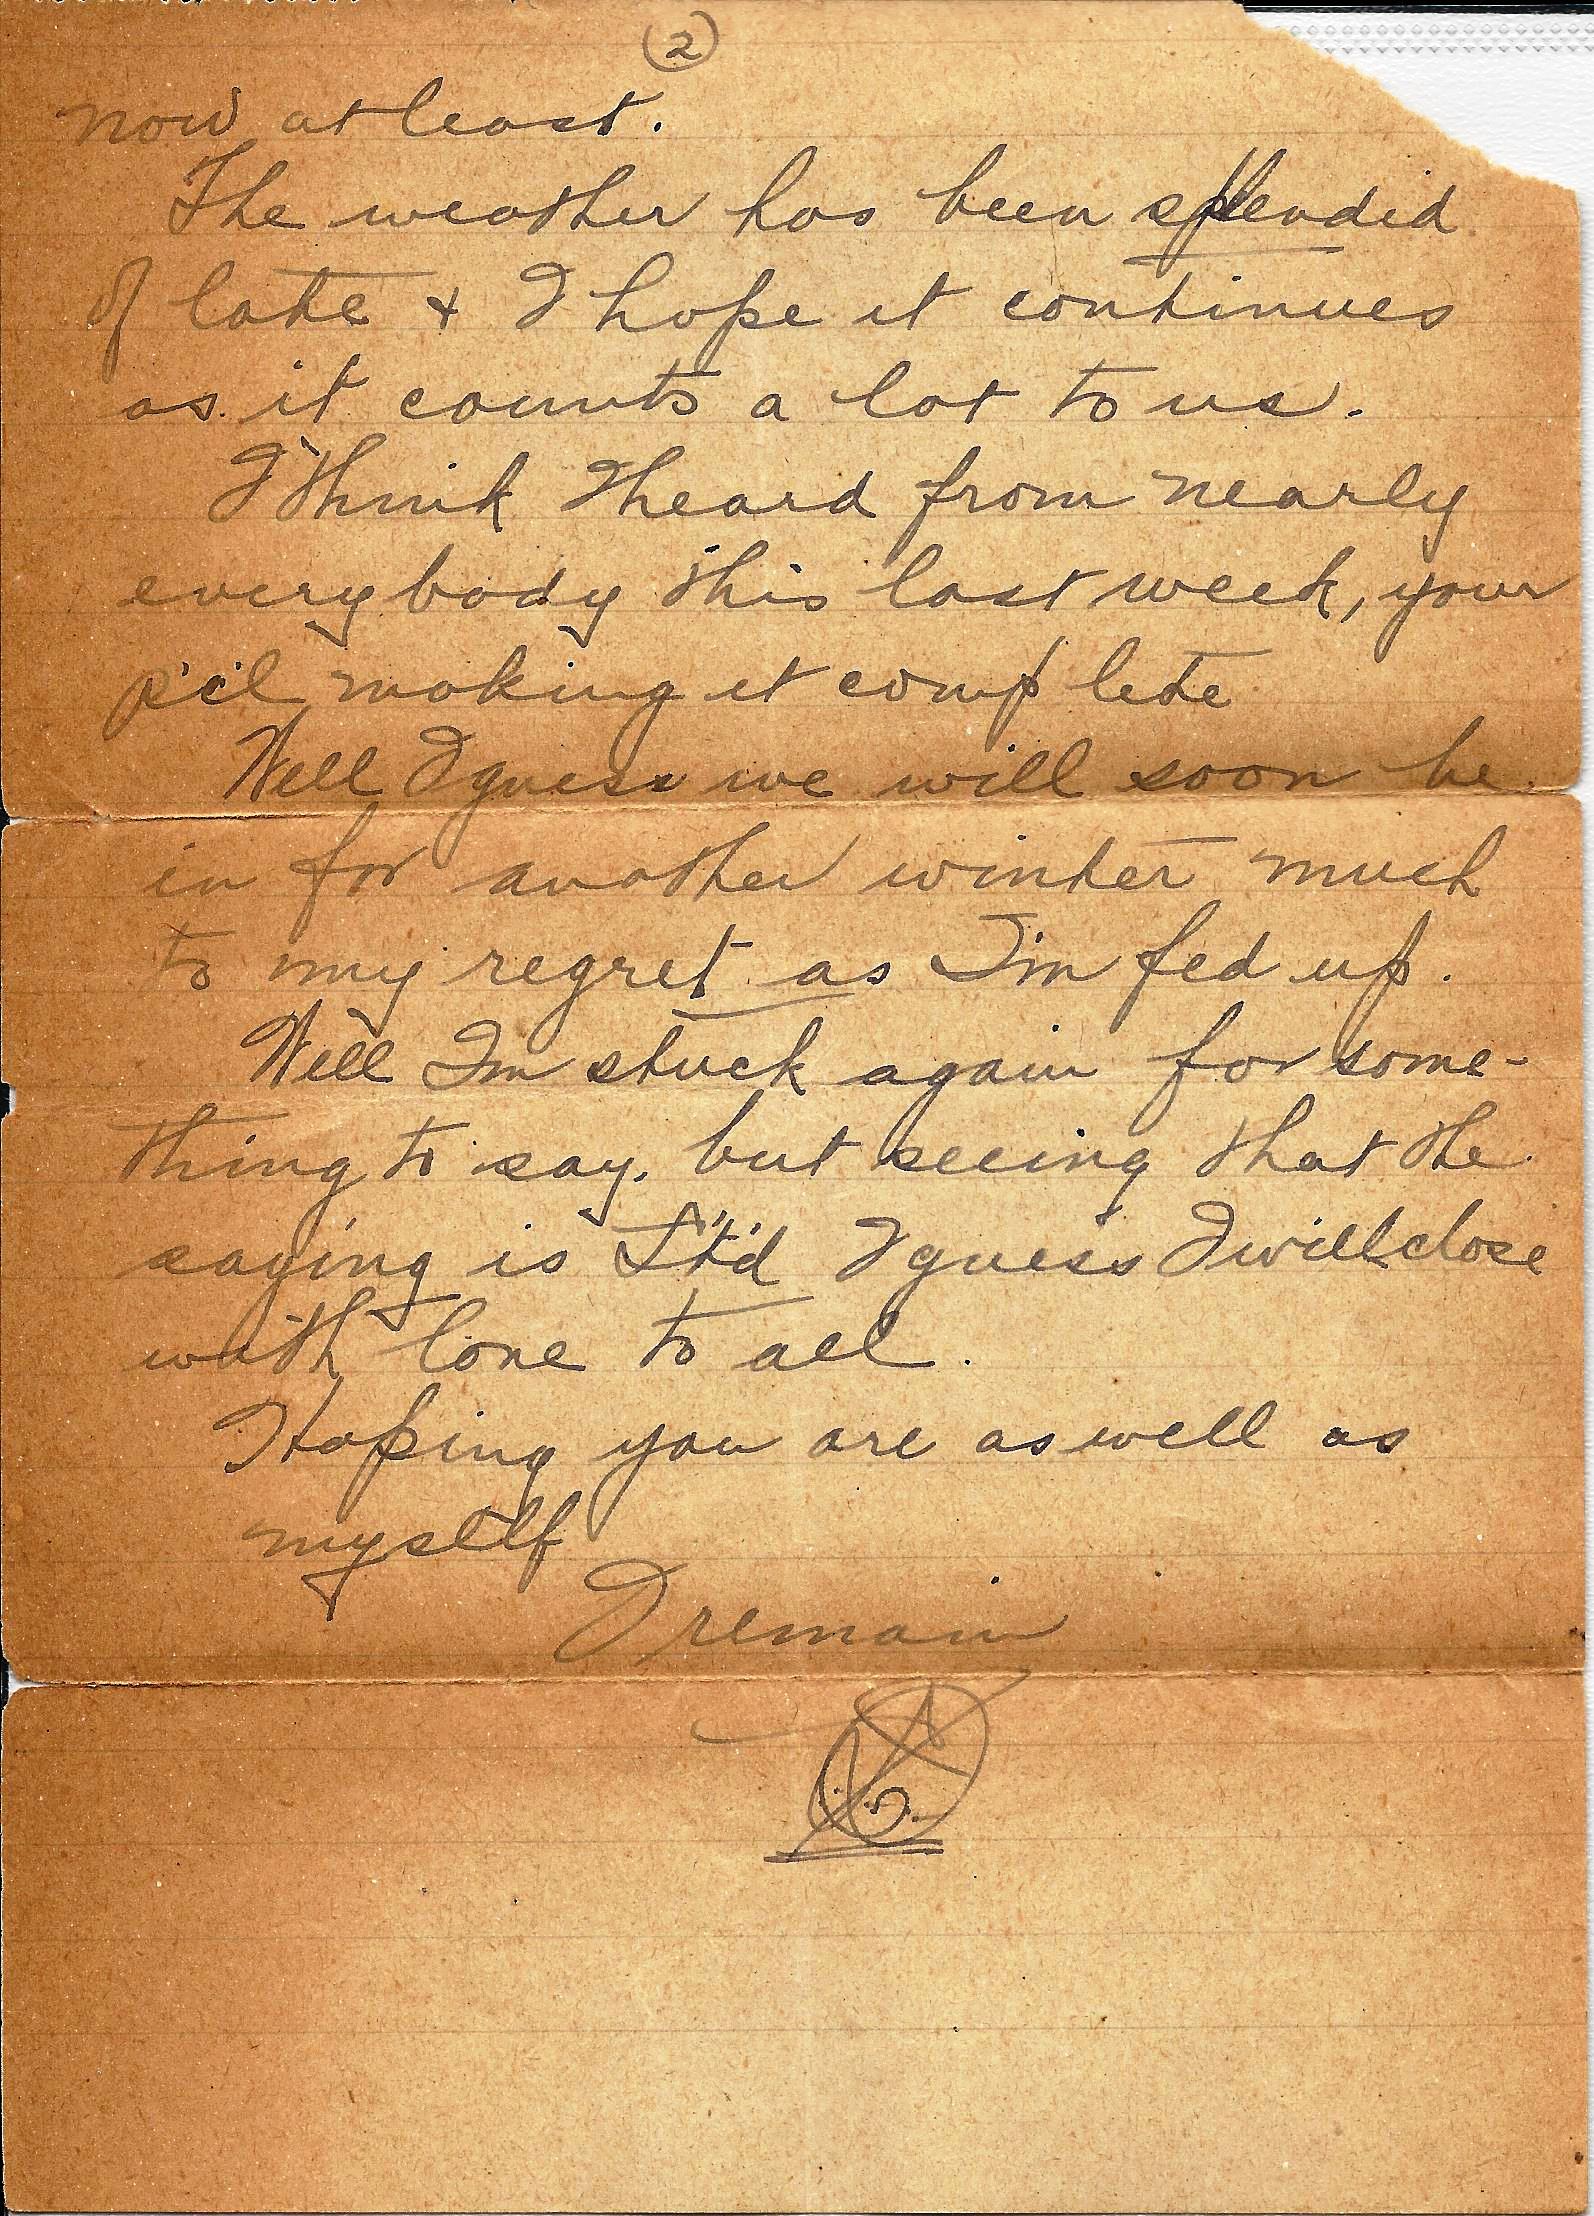 2
now at least.
The weather has been splendid
of late + I hope it continues
as it counts a lot to us.
I think I heard from nearly
everybody this last week, your
p'c'l making it complete
Well I guess we will soon be
in for another winter much
to my regret as I'm fed up.
Well Im stuck again for some-
thing to say, but seeing that the
saying is L't'd I guess I will close
with love to all.
Hoping you are as well as
myself
I remain